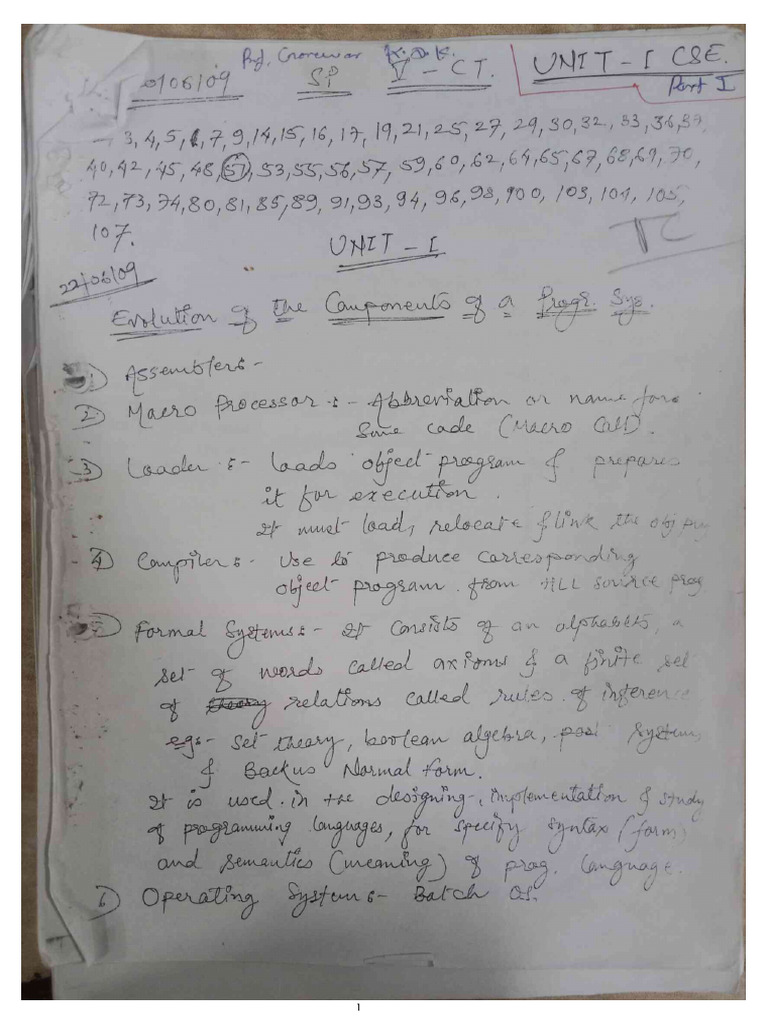 Prof. Gorewar K.D.K.
/06/09 SP V - CT. UNIT - I CSE.
Part I
3, 4, 5, 6, 7, 9, 14, 15, 16, 17, 19, 21, 25, 27, 29, 30, 32, 33, 36, 39,
40, 42, 45, 48, 51, 53, 55, 56, 57, 59, 60, 62, 64, 65, 67, 68, 69, 70,
72, 73, 74, 80, 81, 85, 89, 91, 93, 94, 96, 98, 100, 103, 104, 105,
107.
TC
UNIT - I
22/06/09
Evolution of the Components of a Progr. Sys.
1) Assemblers :-
2) Macro Processor :- Abbreviation or name for
Some code (Macro Call).
3) Loader :- loads object program & prepares
it for execution.
It must load, relocate & link the obj prg
4) Compiler :- Use to produce corresponding
object program. from HLL source prog
5) Formal Systems :- It consists of an alphabets, a
set of words called axioms & a finite set
of theory relations called rules of inference
eg:- Set theory, boolean algebra, post system,
& Backus Normal Form.
It is used in the designing, implementation & study
of programming languages, for specify syntax (form)
and semantics (meaning) of prog. language.
6) Operating System :- Batch OS.
1